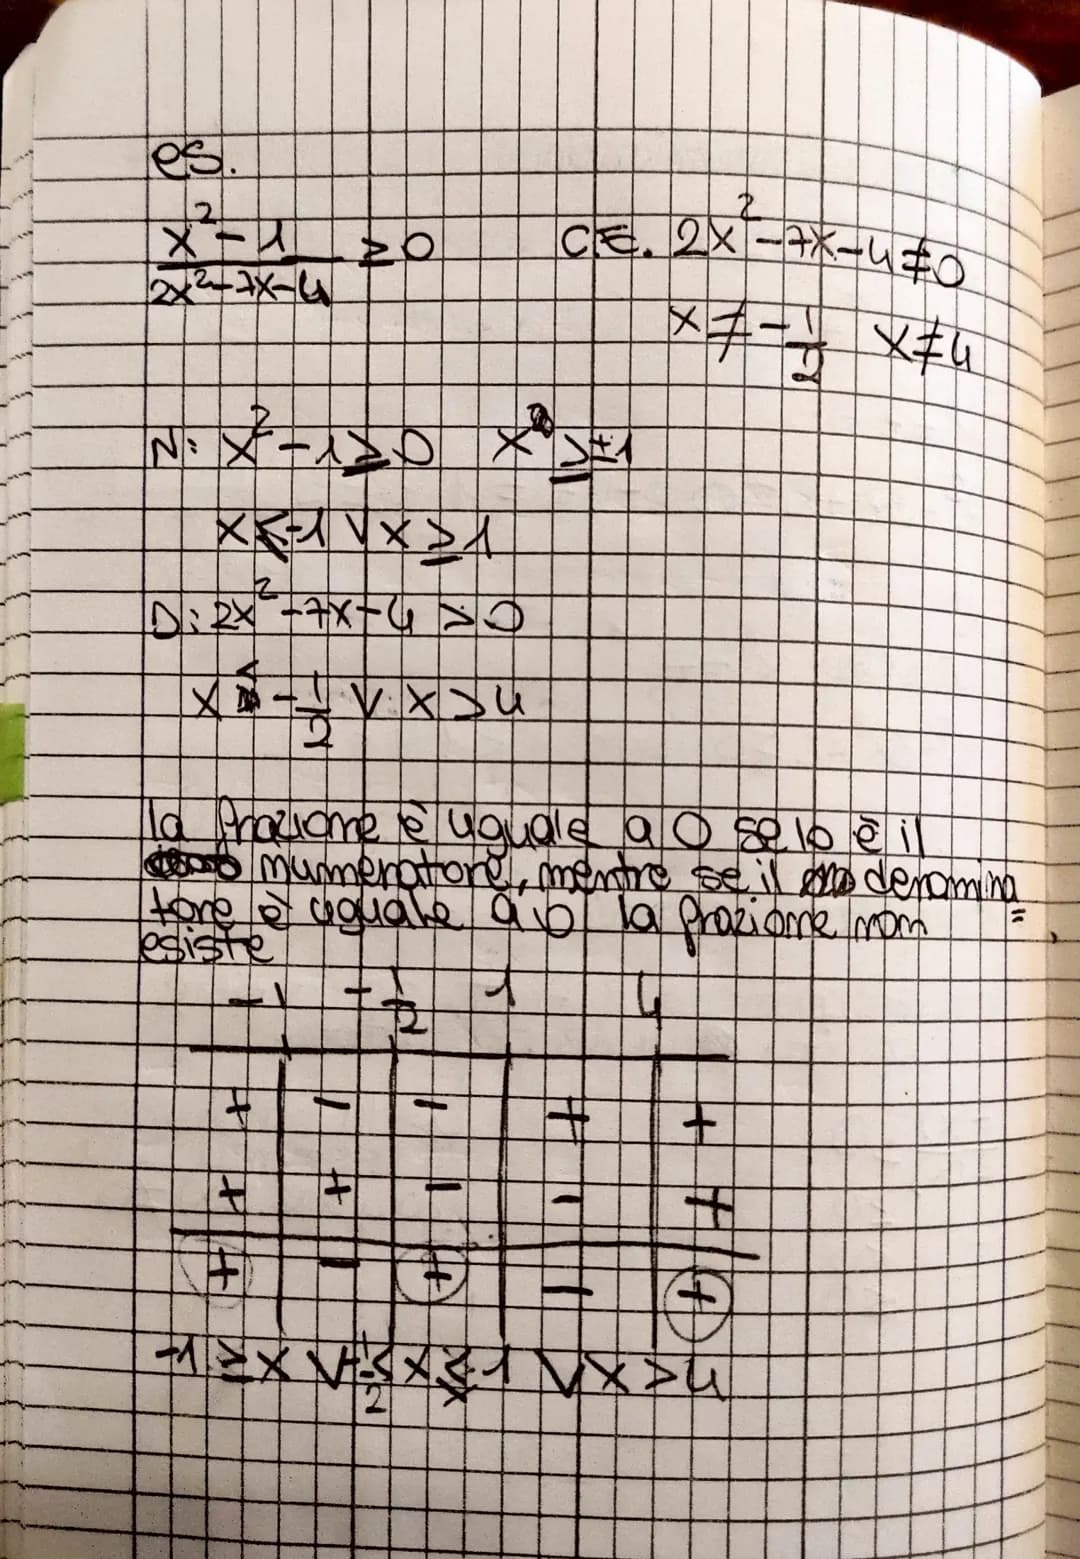 es.
x²-1 / 2x²-7x-4 ≥0 C.E. 2x²-7x-4≠0
x≠-1/2 x≠4
N: x²-1≥0 x ≥±1
x≤-1 V x≥1
D: 2x²-7x-4 >0
x < -1/2 V x>4
la frazione è uguale a 0 se lo è il
numeratore, mentre se il denomina
tore è uguale a 0 la frazione non =
esiste
-1 -1/2 1 4
+ - - + +
+ + - - +
+ - + - +
-1≥x V -1/2< x ≤ 1 V x>4